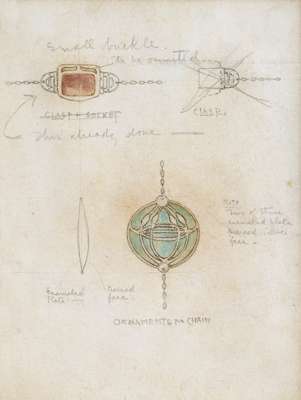 Small buckle.
to be omitted
CLASP + SOCKET
CLASP.
This already done
Note
enamelled plate
Enamelled
Plate.
face.
ORNAMENTS FOR CHAIN